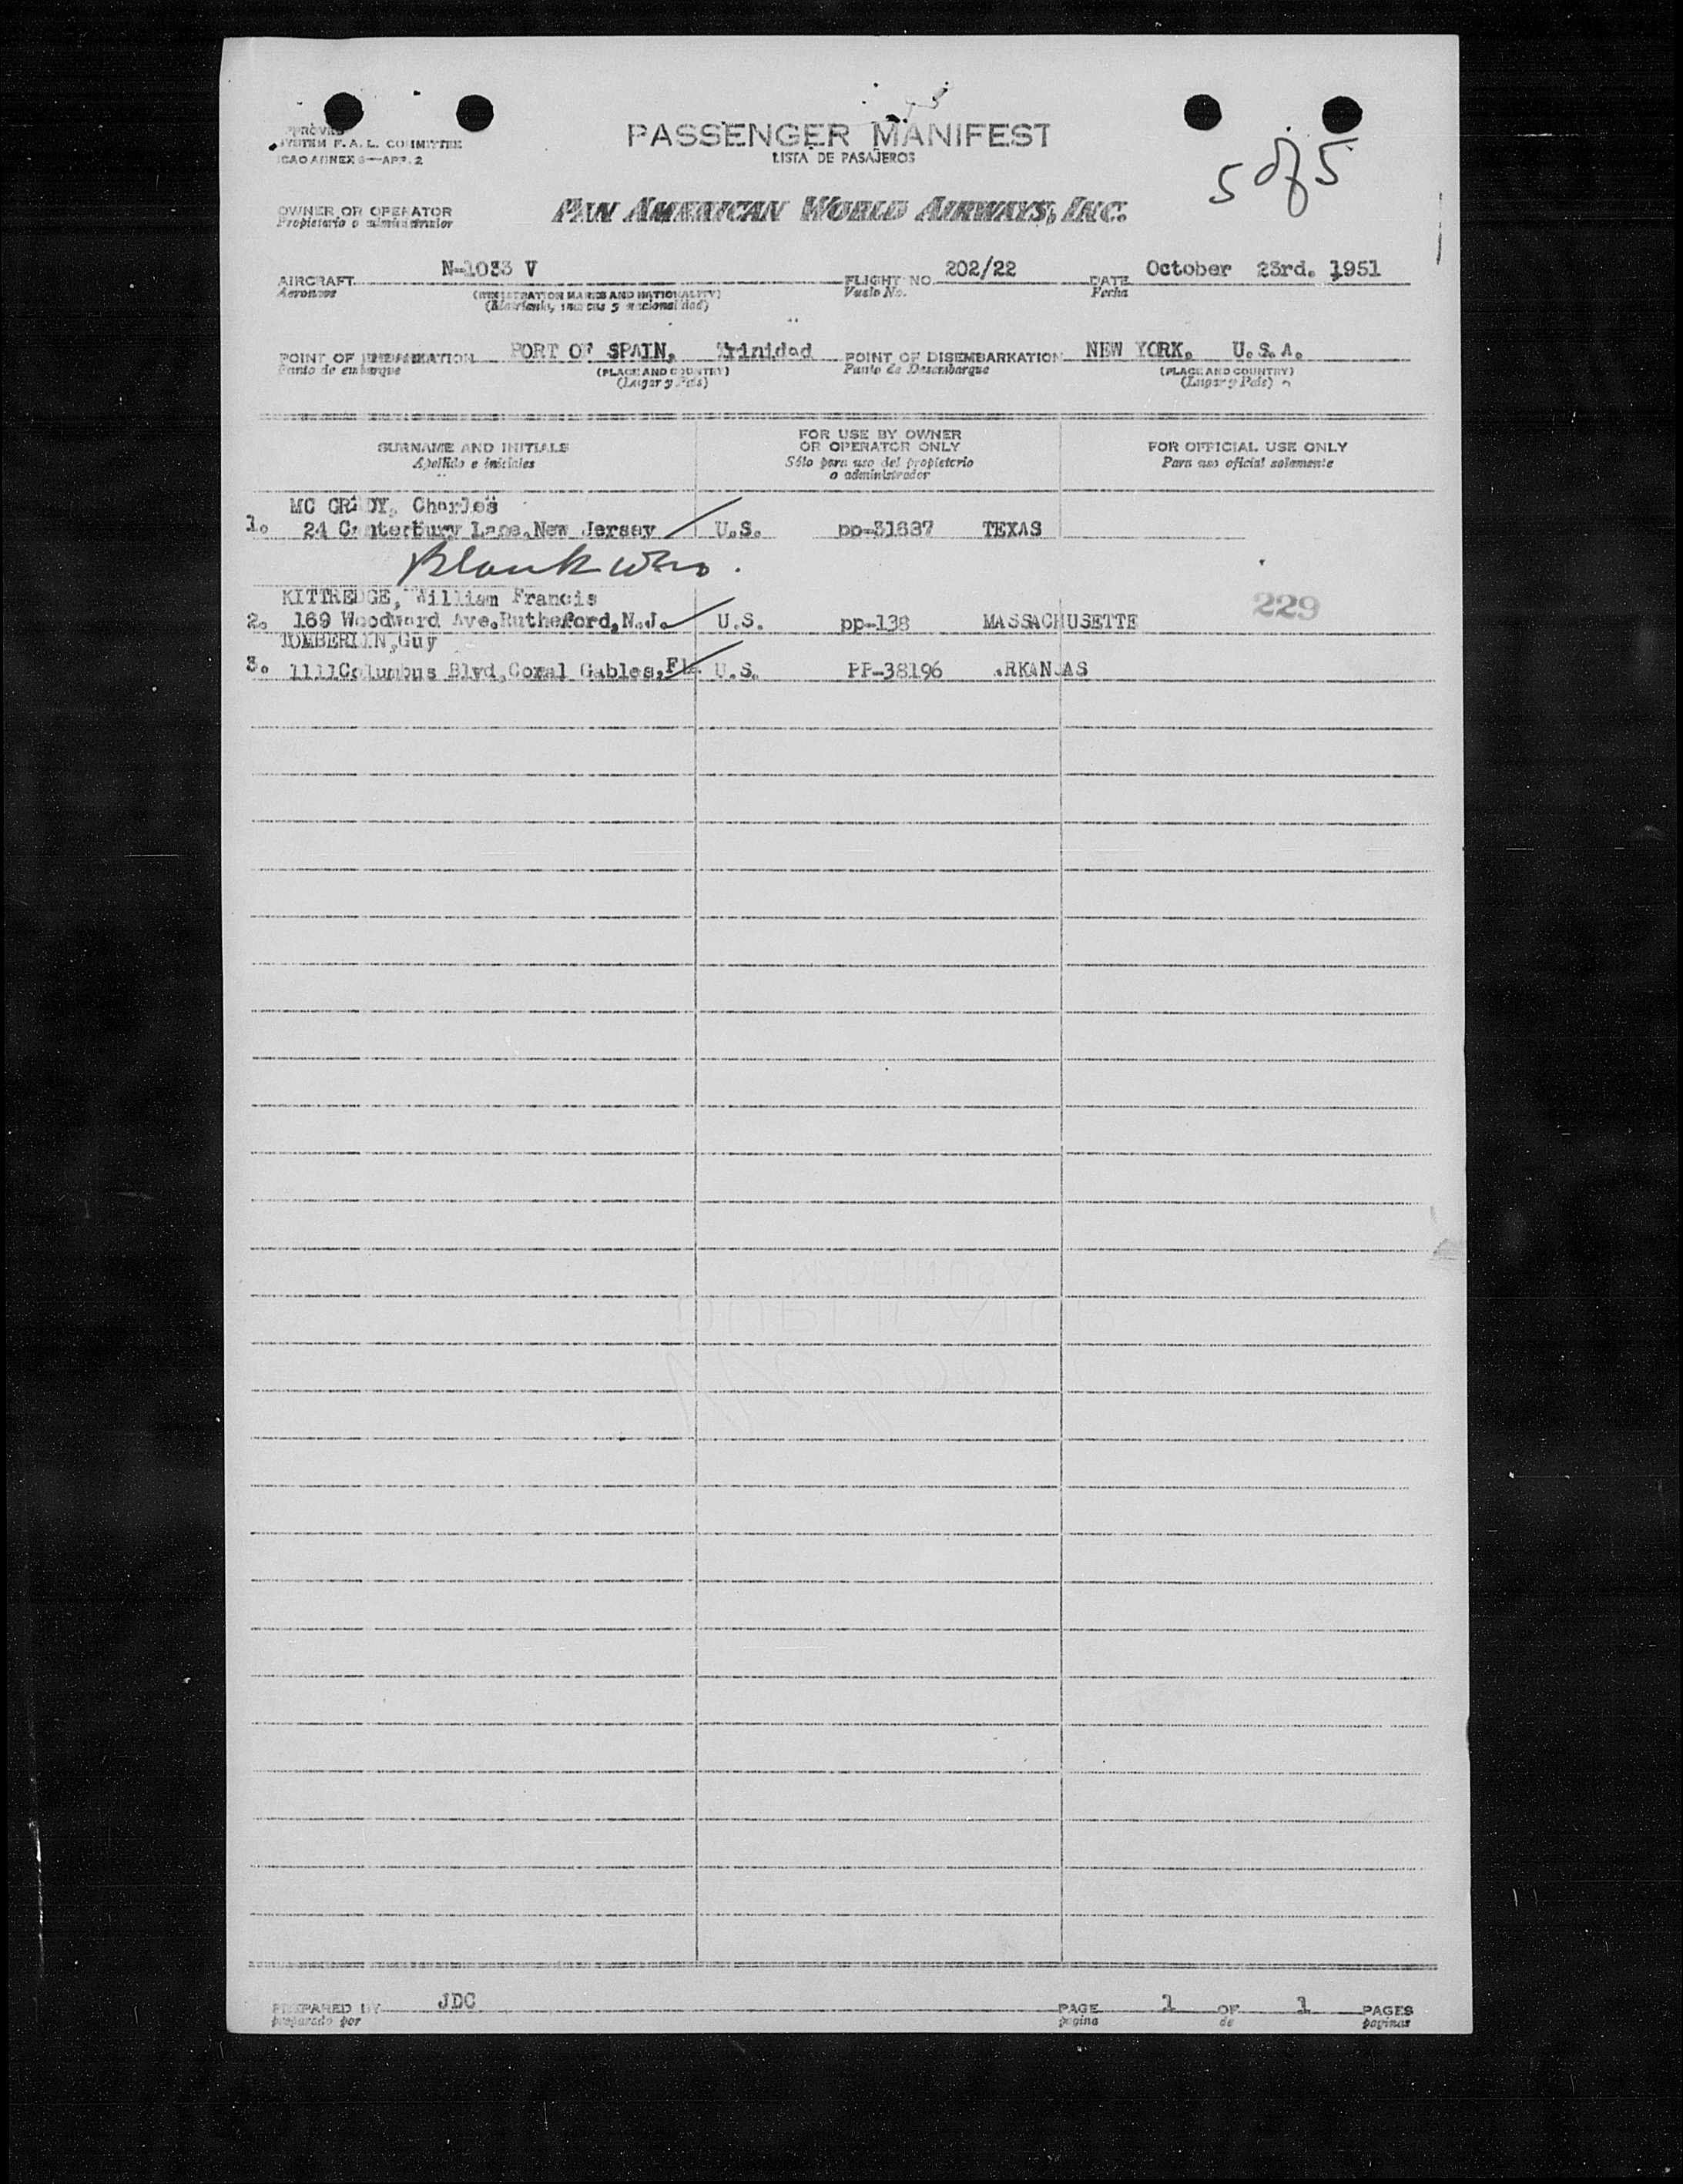 APPROVED
SYSTEM F. A. L. COMMITTEE
ICAO ANNEX 9—APP. 2
PASSENGER MANIFEST
LISTA DE PASAJEROS
5 of 5
OWNER OR OPERATOR
Propietario o administrador
PAN AMERICAN WORLD AIRWAYS, INC.
AIRCRAFT N-1033 V FLIGHT NO. 202/22 DATE October 23rd. 1951
Aeronave (REGISTRATION MARKS AND NATIONALITY) Vuelo No. Fecha
(Matrícula, marcas y nacionalidad)
POINT OF EMBARKATION PORT OF SPAIN, Trinidad POINT OF DISEMBARKATION NEW YORK, U.S.A.
Punto de embarque (PLACE AND COUNTRY) Punto de Desembarque (PLACE AND COUNTRY)
(Lugar y País) (Lugar y País)
SURNAME AND INITIALS FOR USE BY OWNER OR OPERATOR ONLY FOR OFFICIAL USE ONLY
Apellido e iniciales Sólo para uso del propietario o administrador Para uso oficial solamente
MC GRADY, Charles
1. 24 Canterbury Lane, New Jersey U.S. pp-31887 TEXAS
Blank
KITTREDGE, William Francis
229
2. 169 Woodward Ave. Rutherford, N.J. U.S. pp-138 MASSACHUSETTE
TOMBERLIN, Guy
3. 1111 Columbus Blvd, Coral Gables, Fla. U.S. PP-38196 ARKANSAS
PREPARED BY JDC PAGE 1 OF 1 PAGES
preparado por pagina de paginas